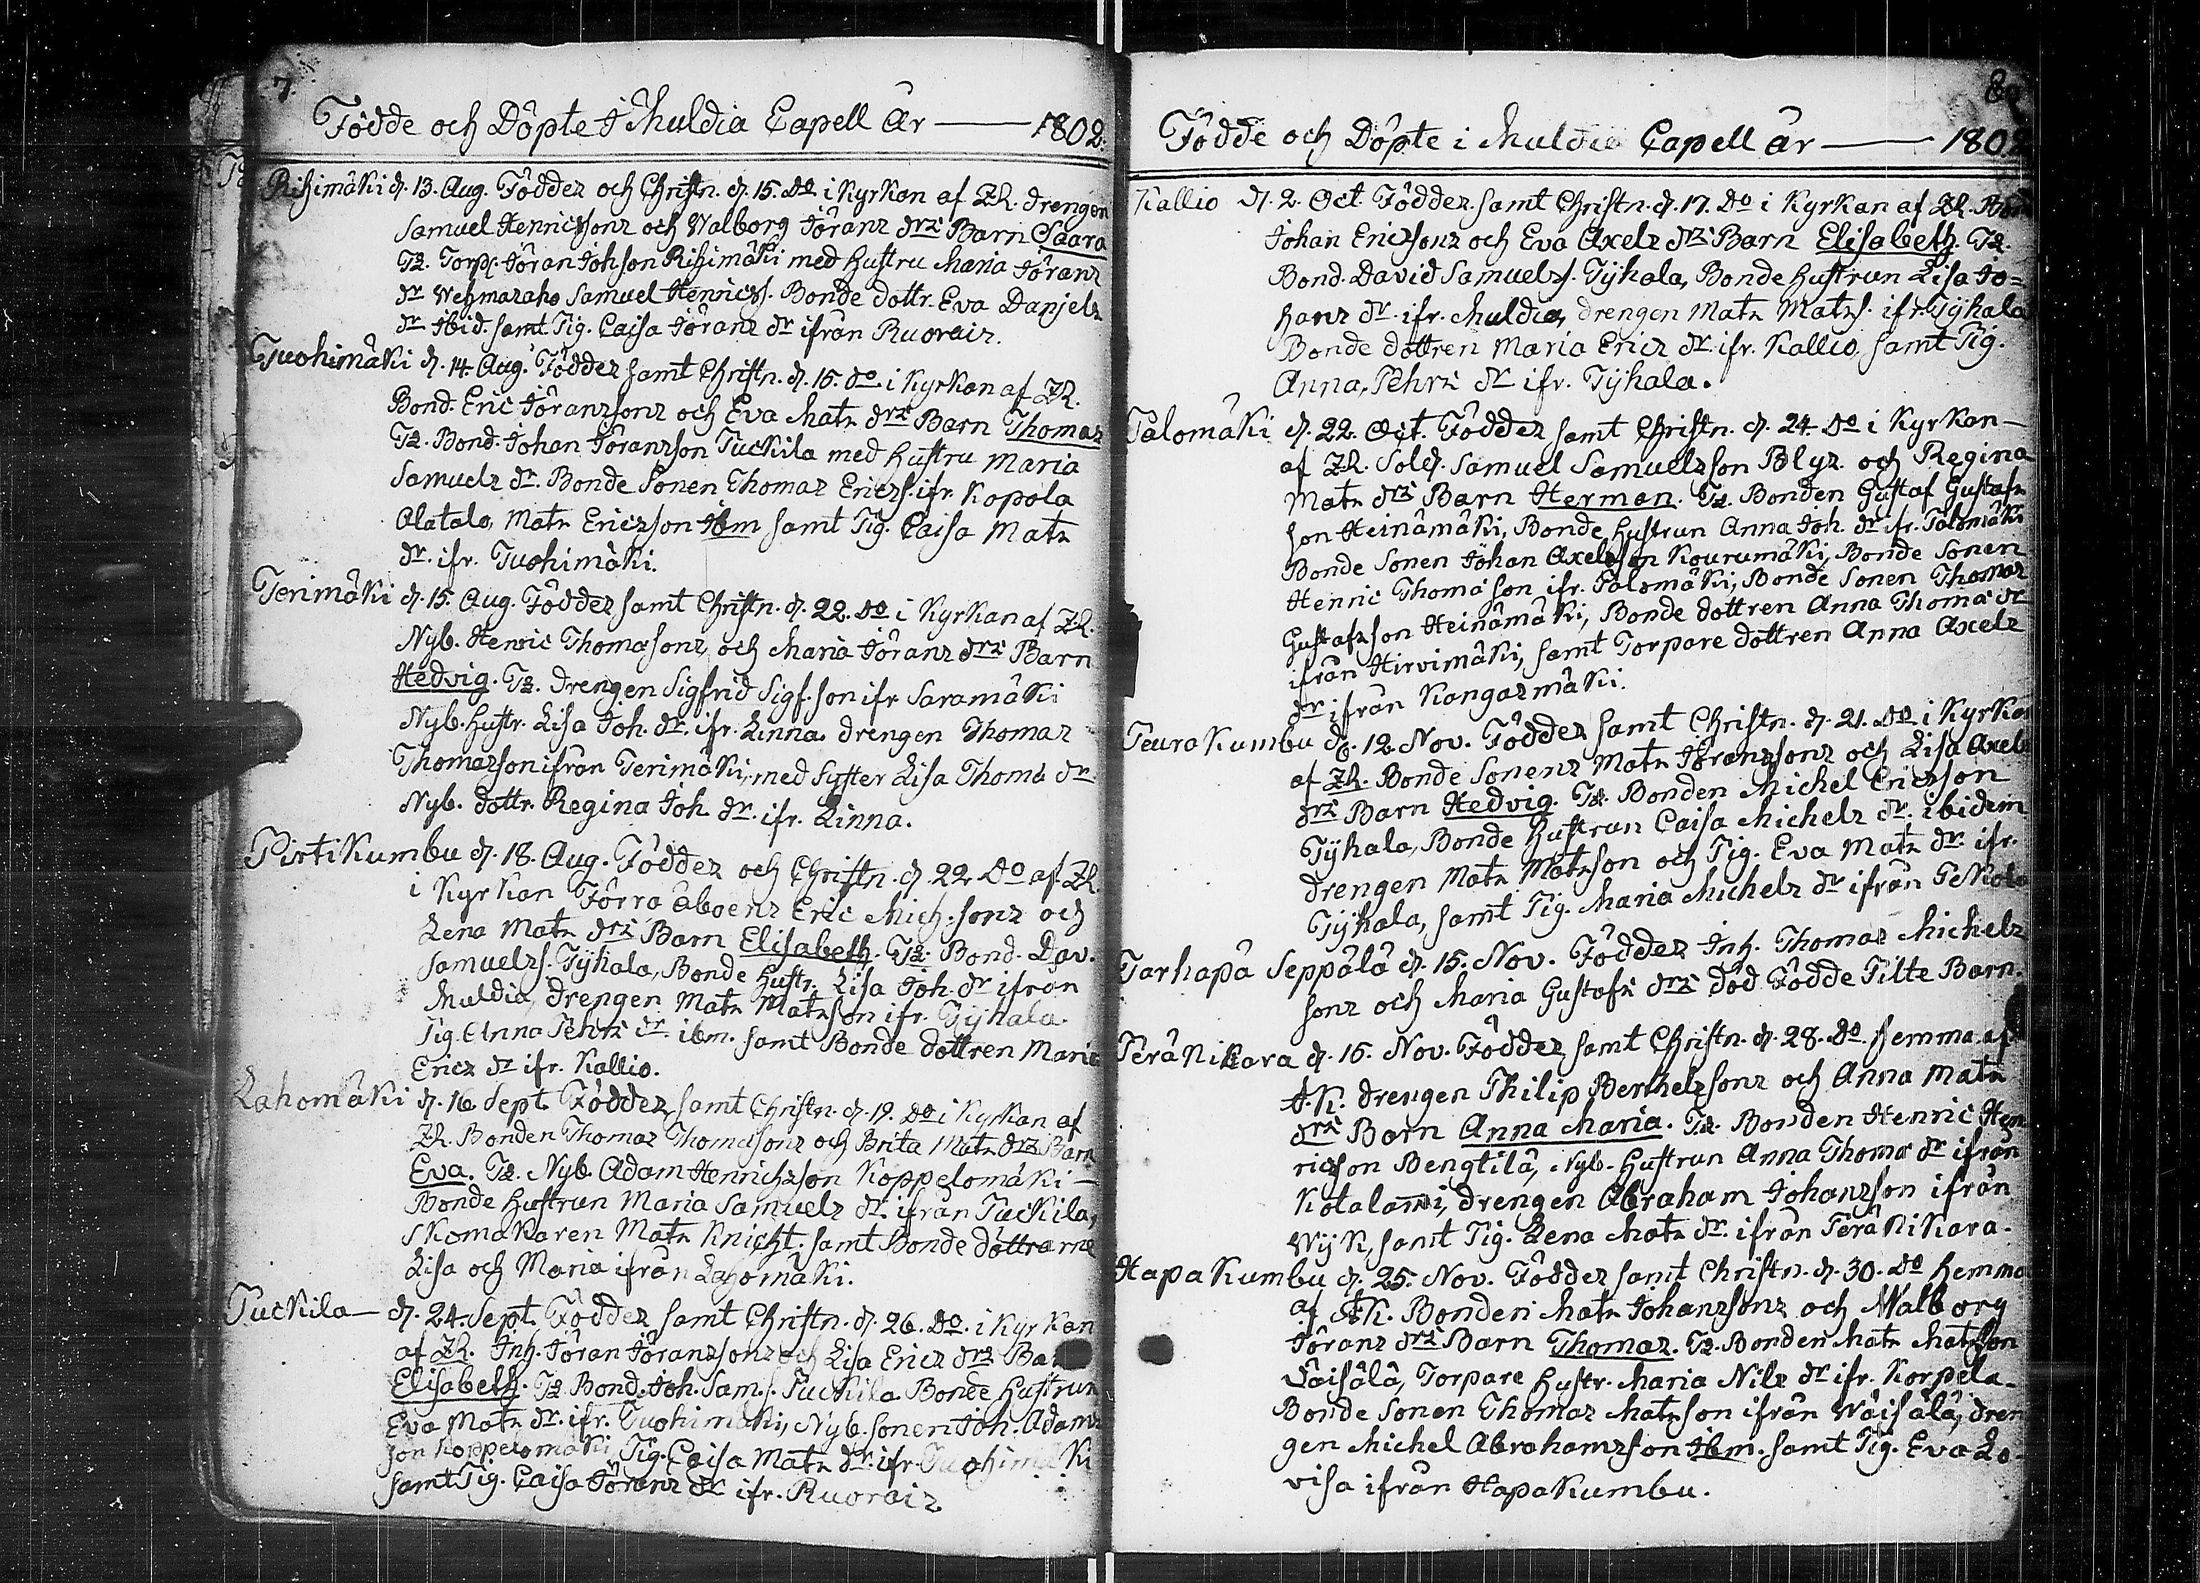 7.
Födde och Döpte i Muldia Capell År — 1802.
Rihimäki d. 13. Aug. Föddes och Christn. d. 15. Do i Kyrkan af ZR. drengen
Samuel Henricssons och Walborg Jörans drs Barn Saara
Tz. Torp. Jöran Johson Rihimäki med hustru Maria Jörans
dr Wehmaraho Samuel Henricss. Bonde dottr. Eva Danjels
dr Ibid. samt Pig. Caisa Jörans dr ifrån Ruorais.
Tuohimäki d. 14. Aug. Föddes samt Christn. d. 15. do i Kyrkan af ZR.
Bond. Eric Jöranssons och Eva Mats drs Barn Thomas
Tz. Bond. Johan Jöransson Tuckila med hustru Maria
Samuels dr. Bonde Sonen Thomas Ericss. ifr. Kopola
Alatalo, Mats Ericsson Ibm samt Pig. Caisa Mats
dr. ifr. Tuohimäki.
Terimäki d. 15. Aug. Föddes samt Christn. d. 22. Do i Kyrkan af ZR.
Nyb. Henric Thomasons och Maria Jörans drs Barn
Hedvig. Tz. drengen Sigfrid Sigf. son ifr Saramäki
Nyb. hustr. Lisa Joh. dr. ifr. Linna. drengen Thomas
Thomasson ifrån Terimäki, med Syster Lisa Thoma dr
Nyb. dottr. Regina Joh. dr. ifr. Linna.
Pirtikumbu d. 18. Aug. Föddes och Christn. d. 22 Do af ZR.
i Kyrkan Förra åboens Eric Mich. sons och
Lena Mats drs Barn Elisabeth. Tz. Bond. Dav.
Samuelss. Tÿhala, Bonde hustr. Lisa Joh. dr ifrån
Muldia, drengen Mats Matsson ifr. Tÿhala.
Pig. Anna Pehrs dr. ibm. samt Bonde dottren Maria
Erics dr ifr. Kallio.
Lahomäki d. 16. Sept. Föddes samt Christn. d. 19. Do i Kyrkan af
ZR. Bonden Thomas Thomasons och Brita Mats drs Barn
Eva. Tz. Nyb. Adam Henrichsson Koppelomäki —
Bonde hustrun Maria Samuels dr. ifrån Tuckila,
Skomakaren Mats Knicht. samt Bonde döttrarne
Lisa och Maria ifrån Lahomäki.
Tuckila — d. 24. Sept. Föddes samt Christn. d. 26. Do. i Kyrkan
af ZR. Inh. Jöran Jöranssons och Lisa Erics drs Ba
Elisabeth. Tz Bond. Joh. Sam.s. Tuckila Bonde hustrun
Eva Mats dr. ifr. Tuohimäki, Nyb. sonen Joh. Adams
son Koppelomäki Pig. Caisa Mats dr. ifr. Tuohimäki
samt Pig. Caisa Jörans dr ifr. Ruorais
8.
Födde och Döpte i Muldia Capell År — 1802
Kallio d. 2. Oct. Föddes samt Christn. d. 17. Do i Kyrkan af ZR.
Johan Ericssons och Eva Axels drs Barn Elisabeth. Tz.
Bond. David Samuelss. Tÿhala, Bonde hustrun Lisa Jo=
hans dr. ifr. Muldia, drengen Mats Matss. ifr. Tÿhala
Bonde dottren Maria Erics dr. ifr. Kallio, samt Pig.
Anna, Pehrs dr ifr. Tÿhala.
Palomäki d. 22. Oct. Föddes samt Christn. d. 24. Do i Kyrkan —
af ZR. Sold. Samuel Samuelsson Blyz och Regina
Mats drs Barn Herman. Tz. Bonden Gustaf Gustafs
son Heinämäki, Bonde hustrun Anna Joh. dr. ifr. Palomäki
Bonde Sonen Johan Axelsson Kourumäki, Bonde Sonen
Henric Thomason ifr. Palomäki, Bonde Sonen Thomas
Gustafsson Heinämäki, Bonde dottren Anna Thoma dr
ifrån Hirvimäki, samt Torpare dottren Anna Axels
dr ifrån Kangasmäki.
Peurakumbu d. 12. Nov. Föddes samt Christn. d. 21. Do i Kyrkan
af ZR. Bonde Sonens Mats Jöranssons och Lisa Axels
drs Barn Hedvig. Tz. Bonden Michel Ericsson
Tÿhala, Bonde hustrun Caisa Michels dr. ibidem
drengen Mats Matsson och Pig. Eva Mats dr. ifr.
Tÿhala, samt Pig. Maria Michels dr ifrån Pekola
Tarhapä Seppälä d. 15. Nov. Föddes Inh. Thomas Michels
sons och Maria Gustafs drs död Födde Pilte Barn.
Peränikara d. 16. Nov. Föddes samt Christn. d. 28. Do. hemma af
A.K. drengen Philip Berthelssons och Anna Mats
drs Barn Anna Maria. Tz. Bonden Henric Hen
ricsson Bengtilä, Nyb. hustrun Anna Thoma dr ifrån
Kotalami, drengen Abraham Johansson ifrån
Wÿk, samt Pig. Lena Mats dr. ifrån Peränikara.
Hapakumbu d. 25. Nov. Föddes samt Christn. d. 30. Do hemma
af AK. Bonden Mats Johanssons och Walborg
Jörans drs Barn Thomas. Tz. Bonden Mats Matsson
Väisälä, Torpare hustr. Maria Nils dr ifr. Korpela.
Bonde Sonen Thomas Matsson ifrån Wäisälä, dren
gen Michel Abrahamsson Ibm. samt Pig. Eva Lo-
visa ifrån Hapakumbu.